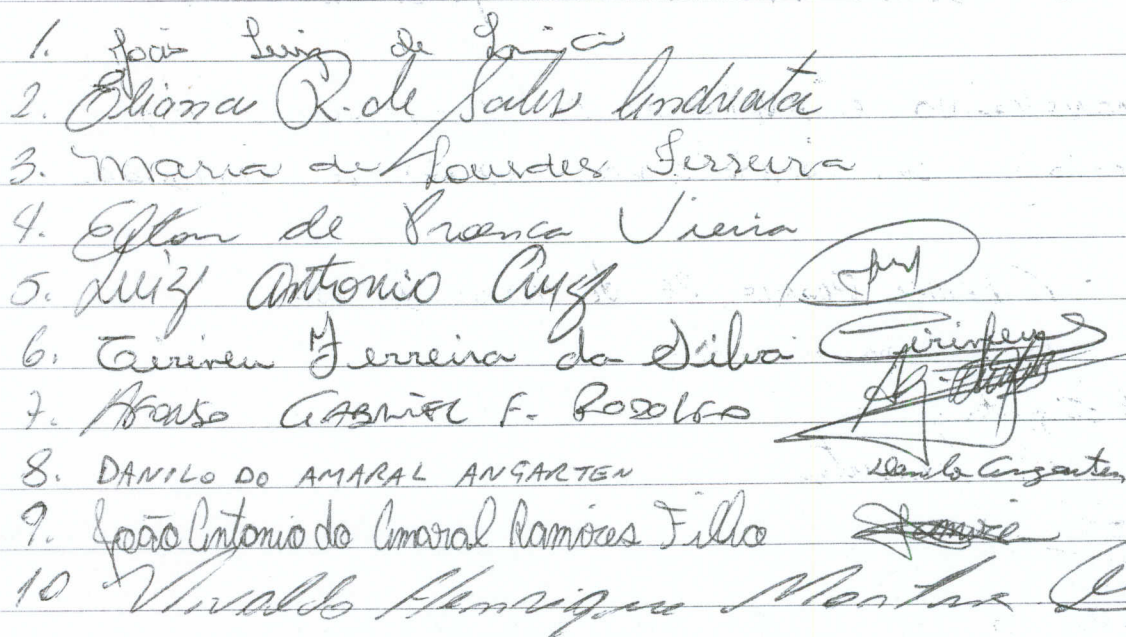 1. João Luiz de
2. Eliana R. de Sales Andreata
3. Maria de Lourdes Ferreira
4. Elton de Proença Vieira
5. Luiz Antonio
6. Cirineu Ferreira da Silva Cirineu
7. Afonso GABRIEL F. RODOLFO
8. DANILO DO AMARAL ANGARTEN Danilo Angarten
9. João Antonio do Amaral Ramires Filho
10 Vivaldo Henrique